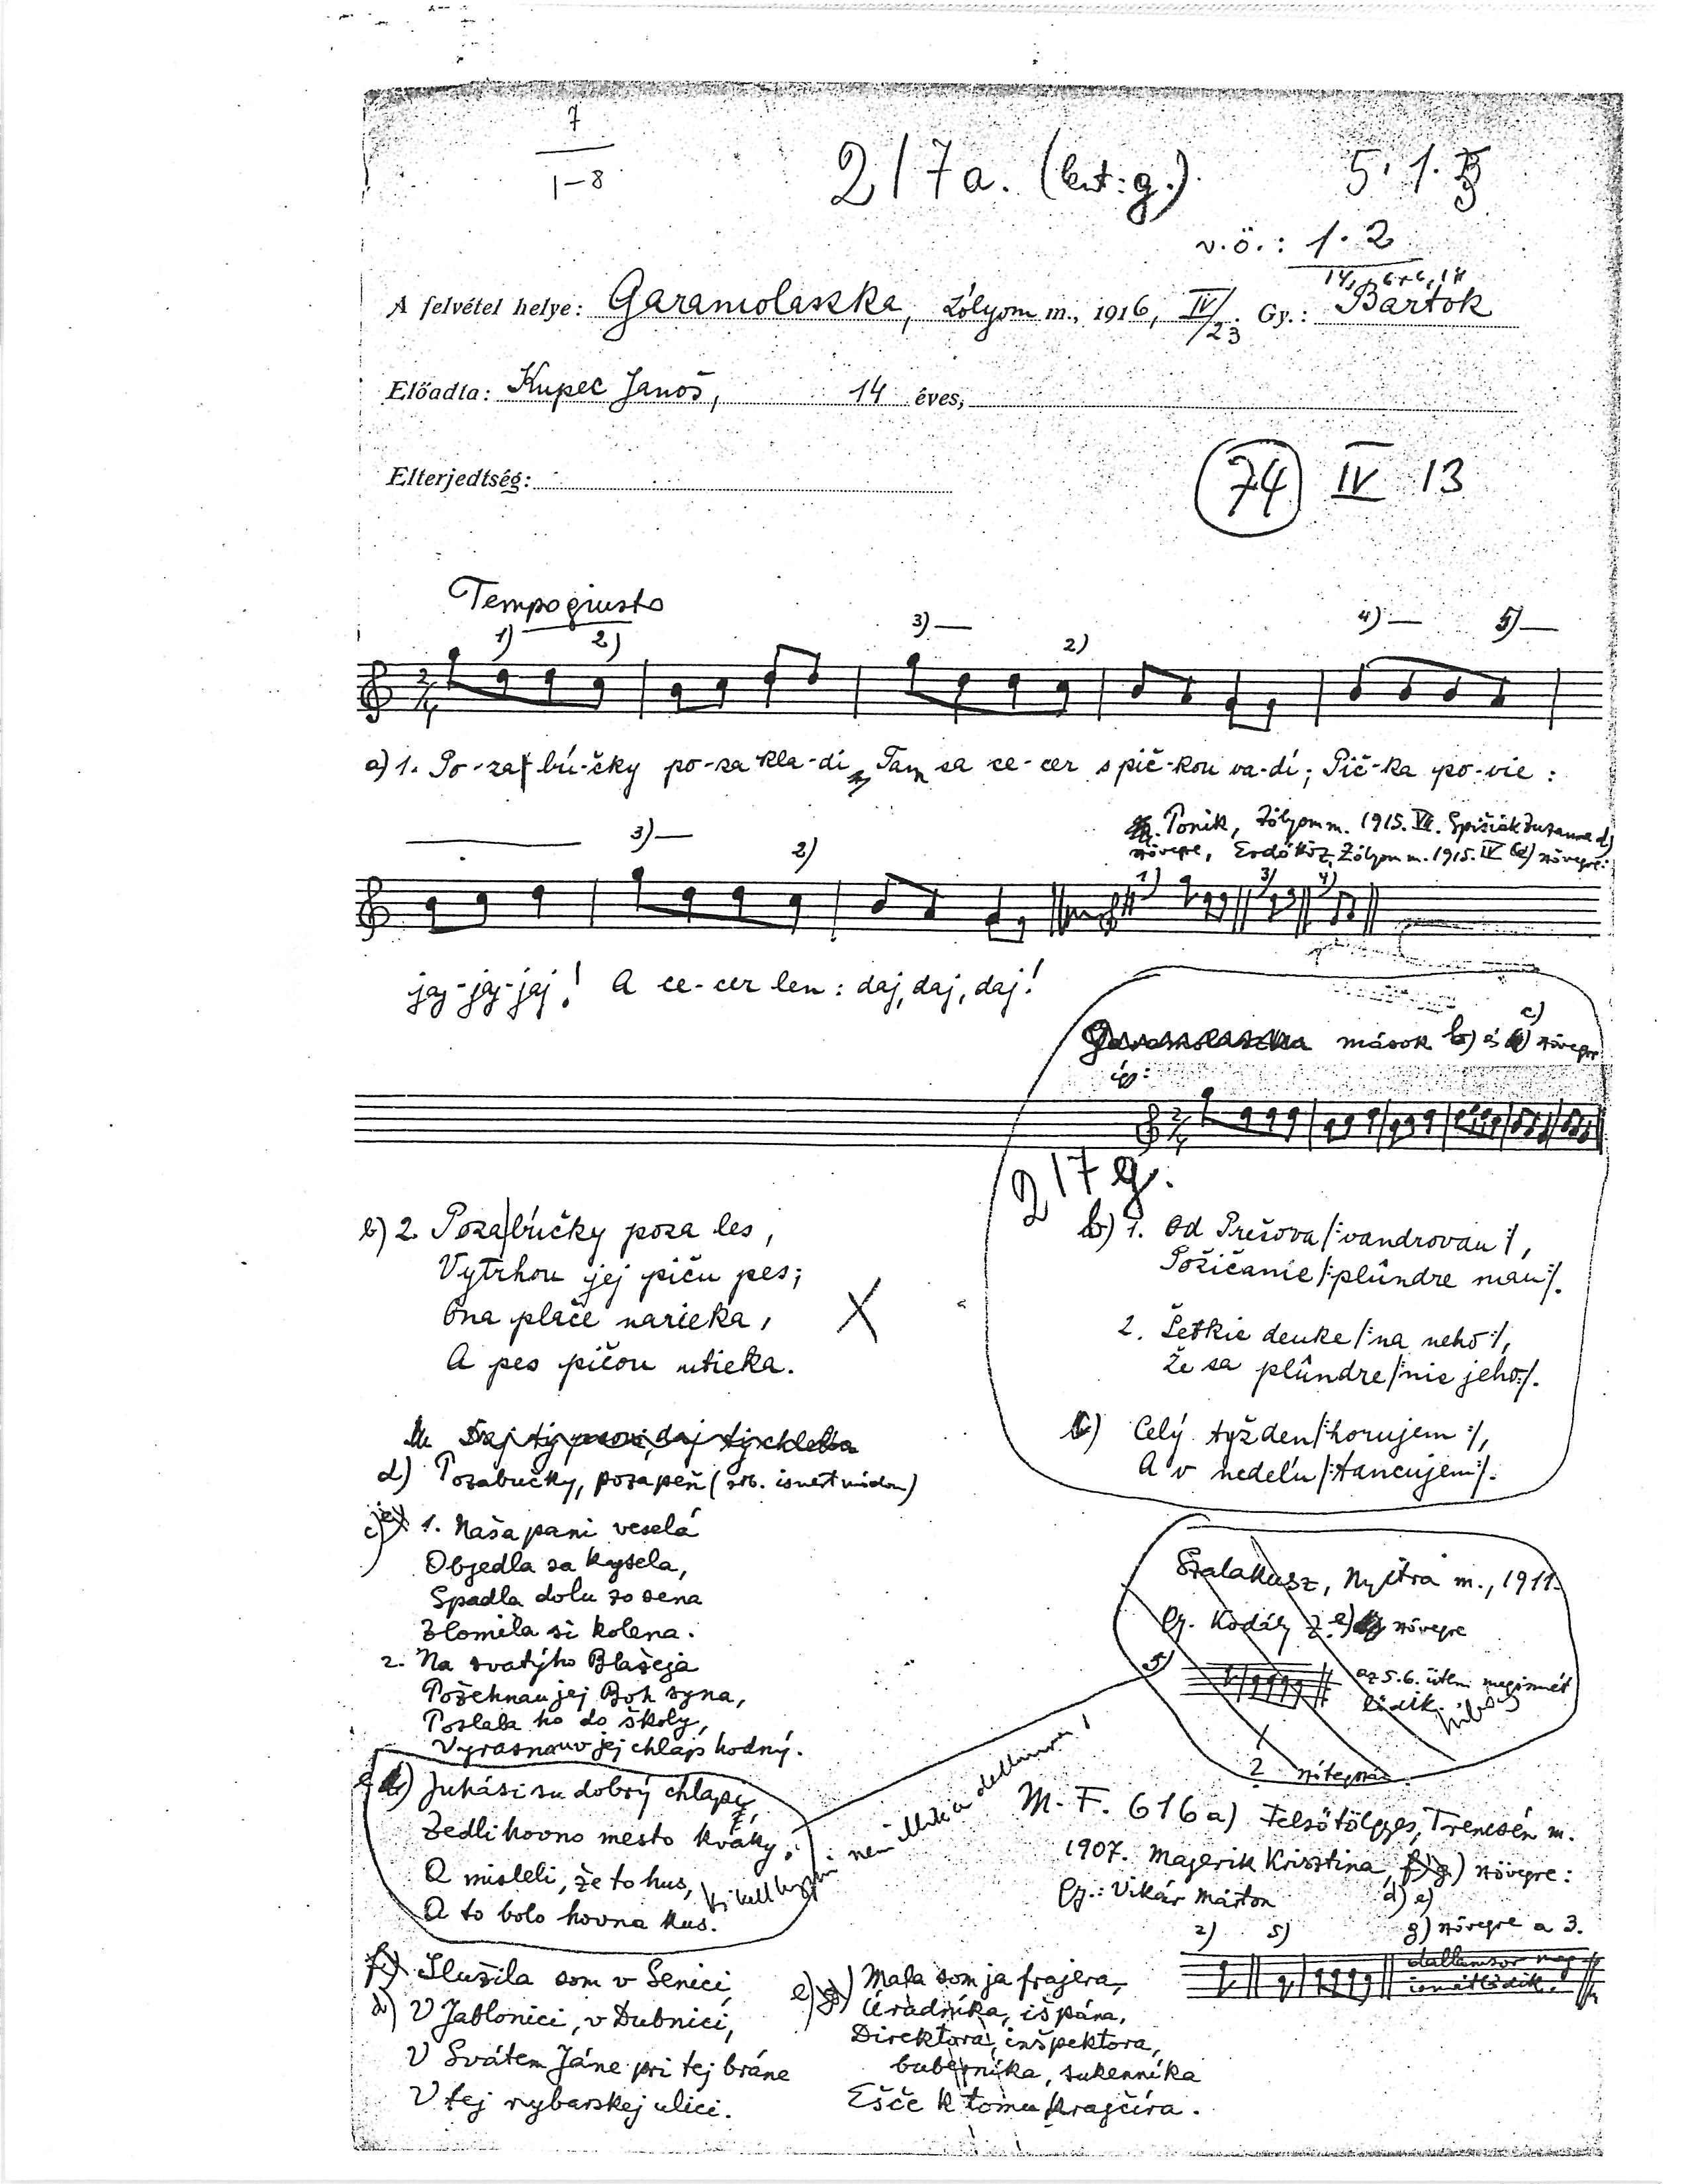 7
1-8
217a. (lent: g.)
5.1.
v.ö.: 1.2
A felvétel helye: Garamolaszka, Zólyom m., 1916, IV/23 Gy.: Bartók
Előadta: Kupec Janoš, 14 éves,
Elterjedtség:
74 IV 13
Tempo giusto
1) 2) 3) 2) 4) 5)
a) 1. Po-za bú-čky po-za kla-di, Tam sa ce-cer s pič-kou va-dí; Pič-ka po-vie:
3) 2)
Ponik, Zólyom m. 1915. VII. Spišiák Zuzanna d)
szövegre, Erdőköz, Zólyom m. 1915. IV d) szövegre:
1) 3) 4)
jaj-jaj-jaj! A ce-cer len: daj, daj, daj!
Garamolaszka mások b) és c) szövegre
így:
217g.
b) 2. Poza búčky poza les,
Vytrhou jej piču pes;
Ona plače narieka,
A pes pičou utieka.
X
b) 1. Od Prešova /: vandrovau :/,
Požičanie /: plûndre mau :/.
2. Šetkie deuke /: na neho :/,
Že sa plûndre /: nie jeho :/.
c) Celý tyžden /: horujem :/,
A v nedeľu /: tancujem :/.
Daj ty psovi, daj ty chleba
d) Pozabučky, poza peň
c) 1. Naša pani veselá
Objedla sa kysela,
Spadla dolu zo sena
Zlomila si kolena.
2. Na svatýho Blažeja
Požehnau jej Boh syna,
Poslala ho do školy,
Vyrasnauv jej chlap hodný.
Szalakusz, Nyitra m., 1911.
Gy. Kodály Z. e) szövegre
5)
az 5. 6. ütem megismét
lődik. hibás
2
e) Juhási su dobrý chlapi,
Zedli hovno mesto kváky;
A misleli, že to hus,
A to bolo hovna kus.
ki kell hagyni nem illik a dallamra!
M. F. 616a) Felsőtölgyes, Trencsén m.
1907. Majerik Krisztina, f) g) szövegre:
Gy.: Vikár Márton
d) e)
2) 5)
g) szövegre a 3.
dallamsor meg
ismétlődik.
f) Slušila som v Senici,
d) V Jablonici, v Dubnici,
V Svátem Jáne pri tej bráne
V tej rybarskej ulici.
e) g) Mala som ja frajera,
Úradníka, išpána,
Direktora, inšpektora,
bubeníka, sukenníka
Ešče k tomu krajčíra.